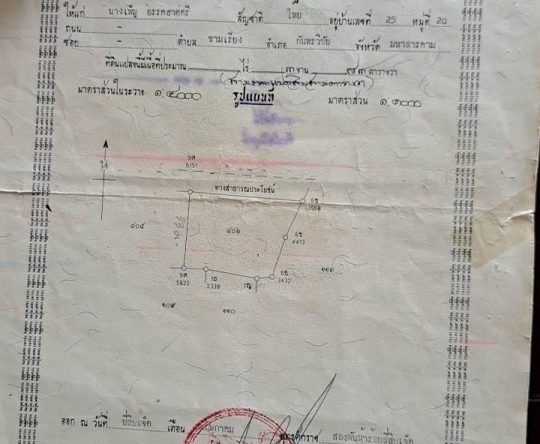 ให้แก่ นางเพ็ญ อรรคฮาตศรี สัญชาติ ไทย อยู่บ้านเลขที่ 25 หมู่ที่ 20
ถนน -
ซอย - ตำบล ขามเรียง อำเภอ กันทรวิชัย จังหวัด มหาสารคาม
ที่ดินแปลงนี้มีเนื้อที่ประมาณ ไร่ ๓ งาน ๗๓ ตารางวา
มาตราส่วนในระวาง ๑:๔๐๐๐ รูปแผนที่ มาตราส่วน ๑:๑๐๐๐
อศ
6151
ทางสาธารณประโยชน์
อช
๔๐๕ ๔๐๖
อช
4413
๑๑๑
อศ
5822
3338
อช
3432
๔๐๙ ๑๑๐
ออก ณ วันที่ ยี่สิบเจ็ด เดือน พฤษภาคม พุทธศักราช สองพันห้าร้อยสี่สิบเจ็ด